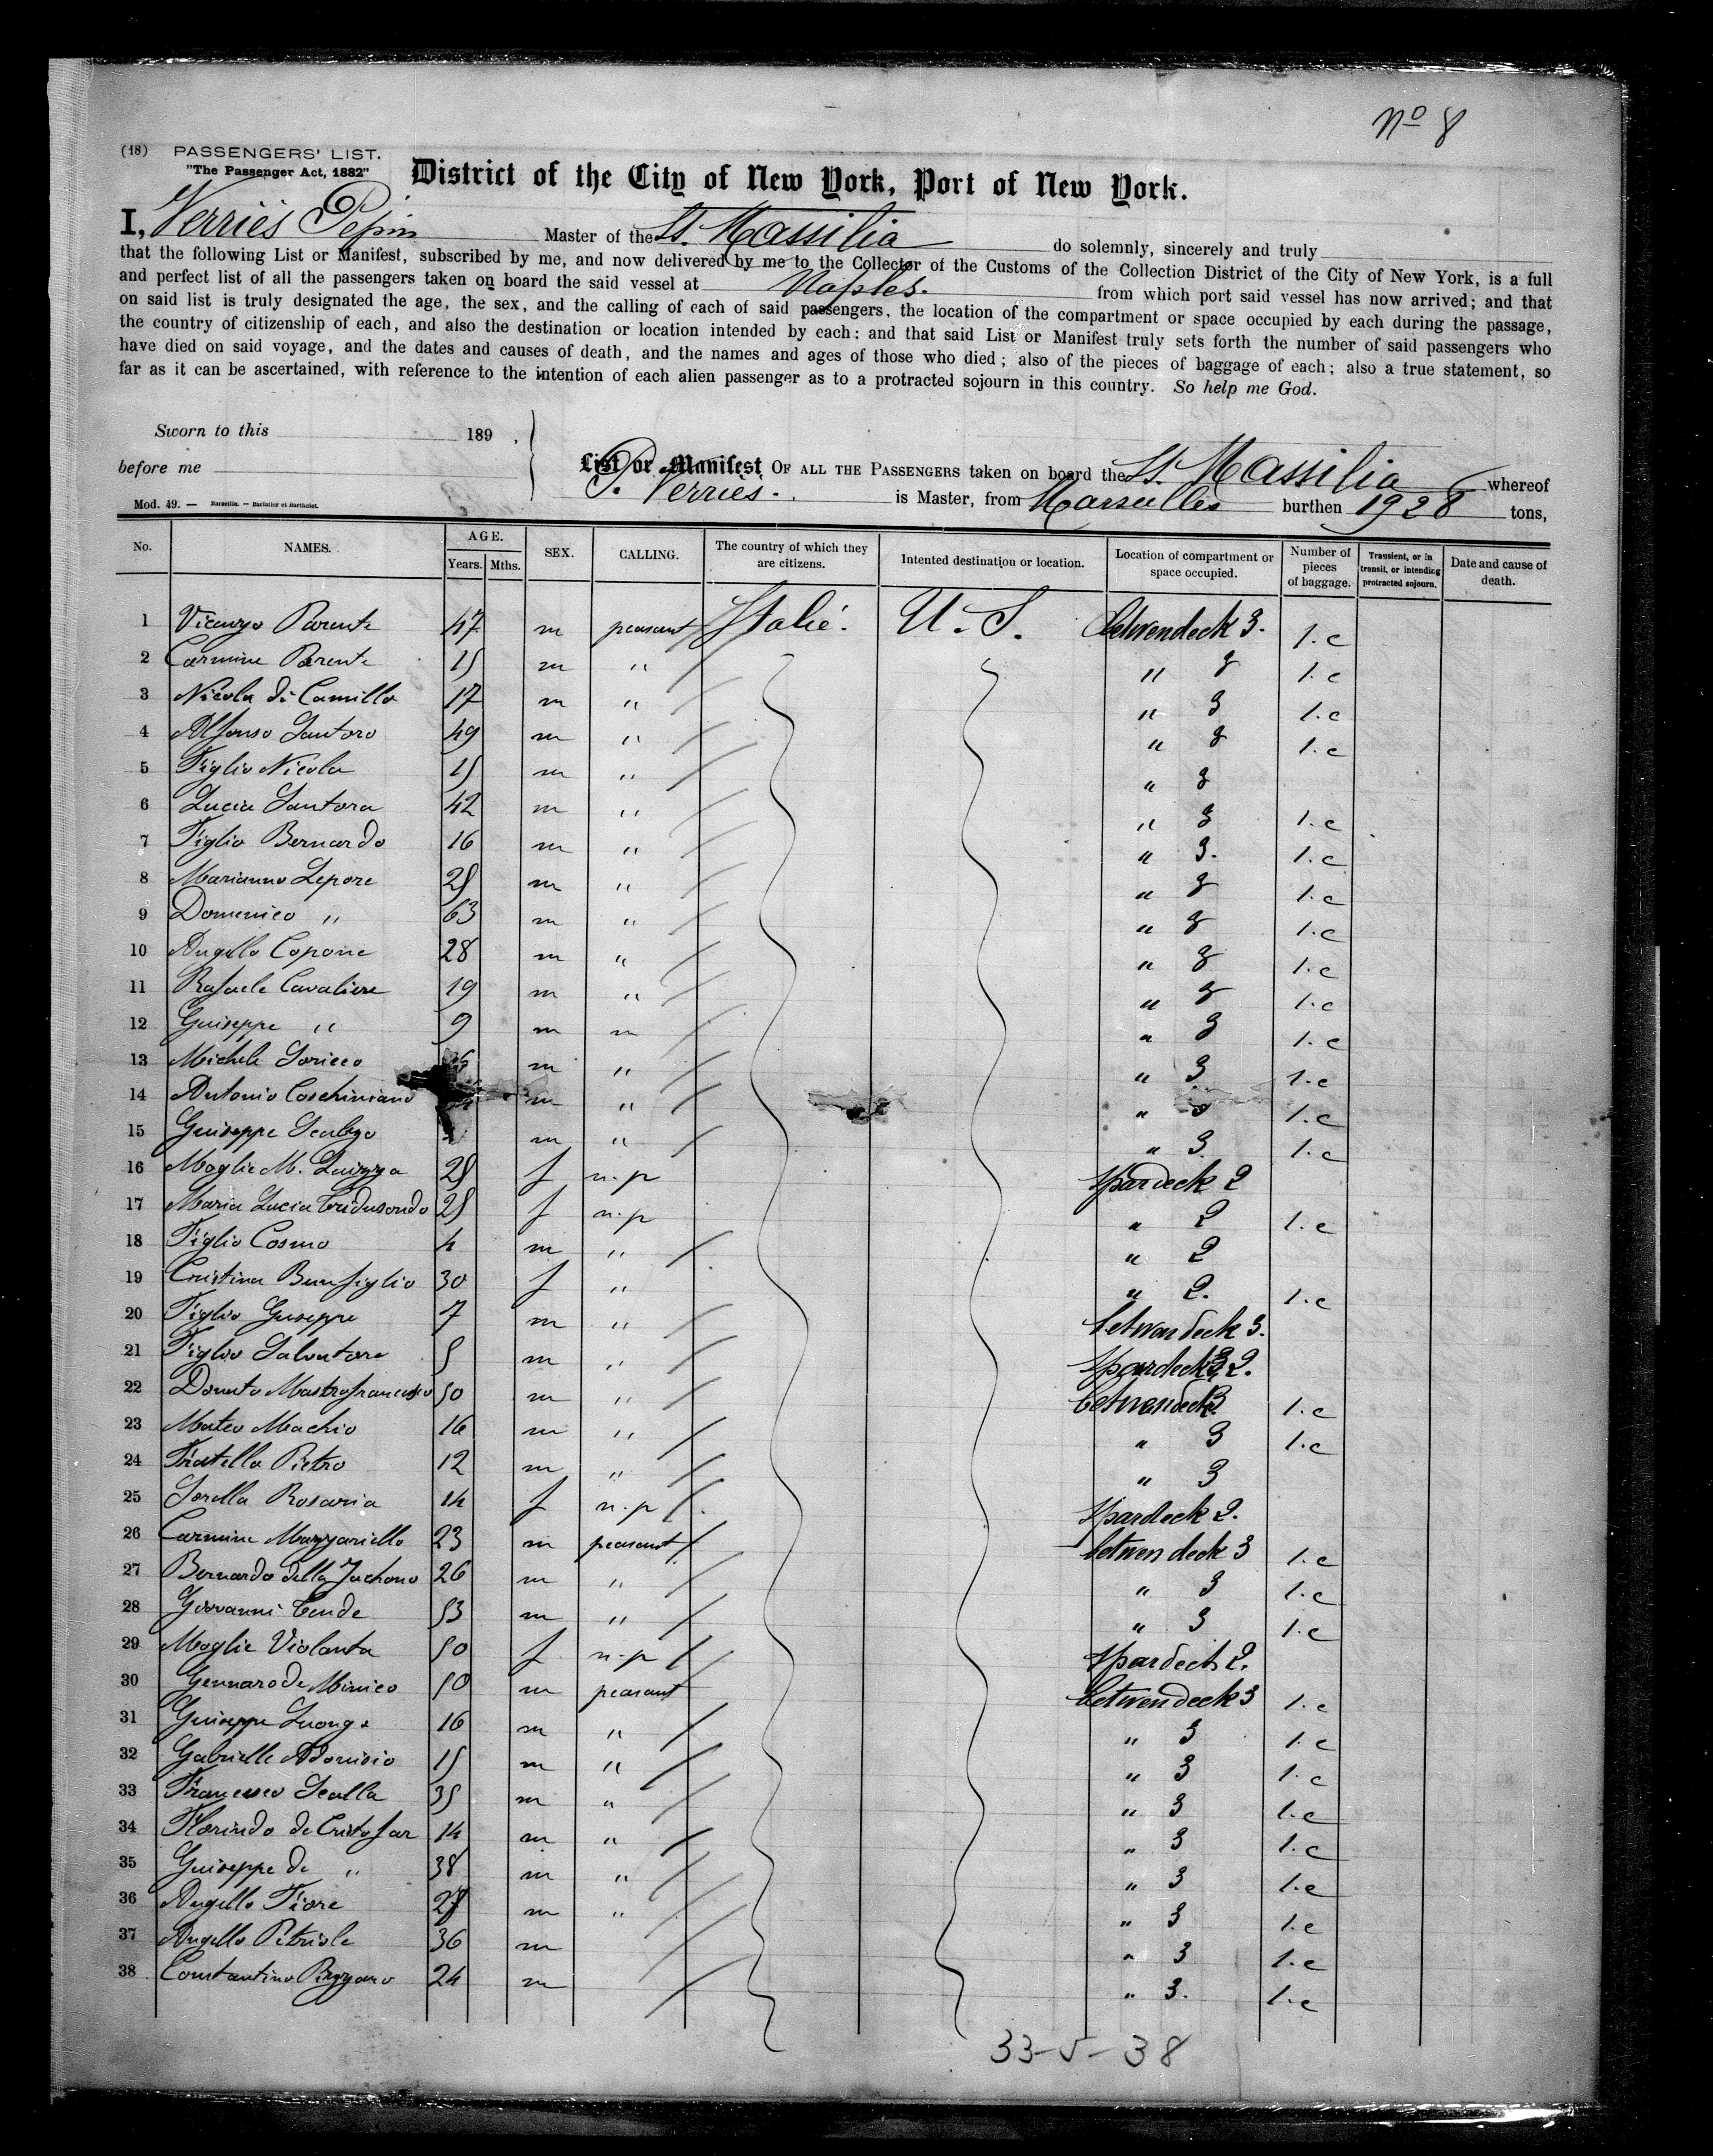 No 8
(18) PASSENGERS' LIST.
"The Passenger Act, 1882"
District of the City of New York, Port of New York.
I, Verries Pepin Master of the St. Massilia do solemnly, sincerely and truly
that the following List or Manifest, subscribed by me, and now delivered by me to the Collector of the Customs of the Collection District of the City of New York, is a full
and perfect list of all the passengers taken on board the said vessel at Naples. from which port said vessel has now arrived; and that
on said list is truly designated the age, the sex, and the calling of each of said passengers, the location of the compartment or space occupied by each during the passage,
the country of citizenship of each, and also the destination or location intended by each: and that said List or Manifest truly sets forth the number of said passengers who
have died on said voyage, and the dates and causes of death, and the names and ages of those who died; also of the pieces of baggage of each; also a true statement, so
far as it can be ascertained, with reference to the intention of each alien passenger as to a protracted sojourn in this country. So help me God.
Sworn to this 189 ,
before me
List or Manifest OF ALL THE PASSENGERS taken on board the St. Massilia whereof
P. Verries. is Master, from Marseilles burthen 1928 tons,
Mod. 49. — Marseille. — Barlatier et Barthelet.
No. NAMES. AGE. Years. Mths. SEX. CALLING. The country of which they are citizens. Intented destination or location. Location of compartment or space occupied. Number of pieces of baggage. Transient, or in transit, or intending protracted sojourn. Date and cause of death.
1 Vicenzo Parente 47 m peasant Italie. U. S. betwendeck 3. 1.c
2 Carmine Parente 15 m " " 3 1.c
3 Nicola di Camillo 17 m " " 3 1.c
4 Alfonso Santoro 49 m " " 3 1.c
5 Figlio Nicola 15 m " " 3
6 Lucia Santora 42 m " " 3 1.c
7 Figlio Bernardo 16 m " " 3. 1.c
8 Marianno Lepore 25 m " " 3 1.c
9 Domenico " 63 m " " 3 1.c
10 Angello Copone 28 m " " 3 1.c
11 Rafaele Cavaliere 19 m " " 3 1.c
12 Guiseppe " 9 m " " 3 1.c
13 Michele Soricco m " " 3 1.c
14 Antonio Coschiniano m " " 3 1.c
15 Guiseppe Scalzo m " " 3. 1.c
16 Moglie M. Luizza 25 f n.p spardeck 2
17 Maria Lucia 25 f n.p " 2 1.c
18 Figlio Cosmo 4 m " " 2
19 Cristina Bunfiglio 30 f " " 2. 1.c
20 Figlio Guseppe 7 m " betwendeck 3.
21 Figlio Salvatore 5 m " spardeck 2.
22 Donato Mastrofrancesco 50 m " betwendeck 3 1.c
23 Mateo Machio 16 m " " 3 1.c
24 Fratello Pietro 12 m " " 3
25 Sorella Rosaria 14 f n.p spardeck 2.
26 Carmine Mazzariello 23 m peasant betwen deck 3 1.c
27 Bernardo della Jachono 26 m " " 3 1.c
28 Giovanni Cende 53 m " " 3 1.c
29 Moglie Violanta 50 f n.p spardeck 2.
30 Gennaro de Minico 50 m peasant betwendeck 3 1.c
31 Guiseppe Luongo 16 m " " 3 1.c
32 Gabrielle Adonisio 15 m " " 3 1.c
33 Francesco Scalla 35 m " " 3 1.c
34 Florindo de Cristofar 14 m " " 3 1.c
35 Guiseppe de " 38 m " " 3 1.c
36 Angello Fiore 27 m " " 3 1.c
37 Angello Petriole 36 m " 3 1.c
38 Constantino Pizzaro 24 m " 3. 1.c
33-5-38